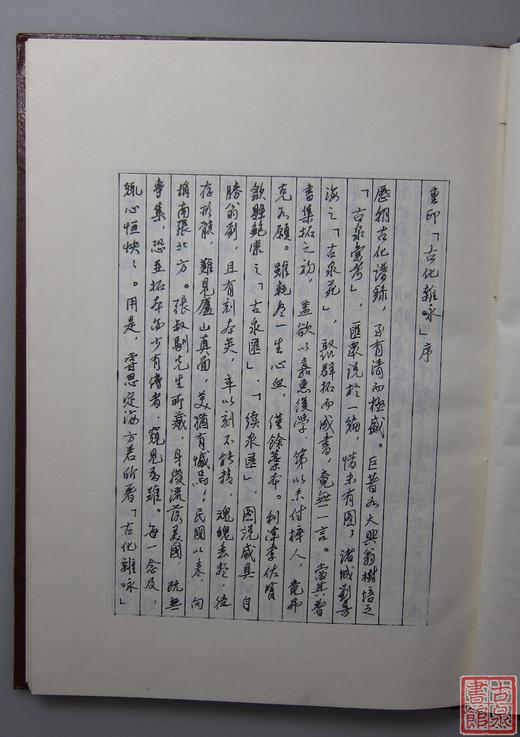 重印「古化雜咏」序
歷朝古化譜錄，至有清而極盛。巨著如大興翁樹培之
「古泉彙考」，匯眾說於一編，惜未有圖；諸城劉喜
海之「古泉苑」，聚群拓而成書，竟無一言。當其著
書集拓之初，蓋欲以嘉惠後學，第以未付梓人，竟弗
克如願。雖耗盡一生心血，僅餘藁本。利津李佐賢
歙縣鮑康之「古泉匯」、「續泉匯」，圖說咸具，自
勝翁劉，且有刻本矣，率以刻不能精，魂魄盡墜，徒
存形骸，難見廬山真面，美猶有憾焉；民國以來，向
稱南張北方。張叔馴先生所藏，身後流落美國，既無
專集，恐並拓本亦少有傳者，窺見為難。每一念及，
輒心恒怏怏。用是，嘗思定海方若所著「古化雜咏」
古泉
書館